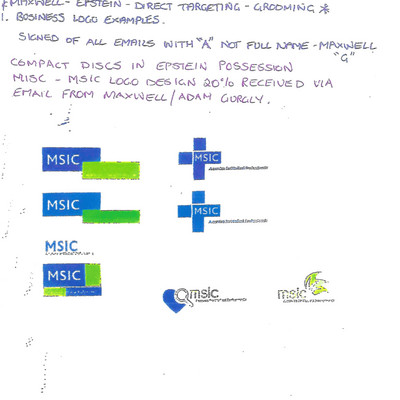 * MAXWELL - EPSTEIN - DIRECT TARGETING - GROOMING *
1. BUSINESS LOGO EXAMPLES.
SIGNED OF ALL EMAILS WITH "A" NOT FULL NAME - MAXWELL "G"
COMPACT DISCS IN EPSTEIN POSSESSION
MISC - MSIC LOGO DESIGN 20% RECEIVED VIA
EMAIL FROM MAXWELL/ADAM GURGLY.
MSIC
MSIC
MSIC
MSIC
MSIC
MSIC
msic
msic